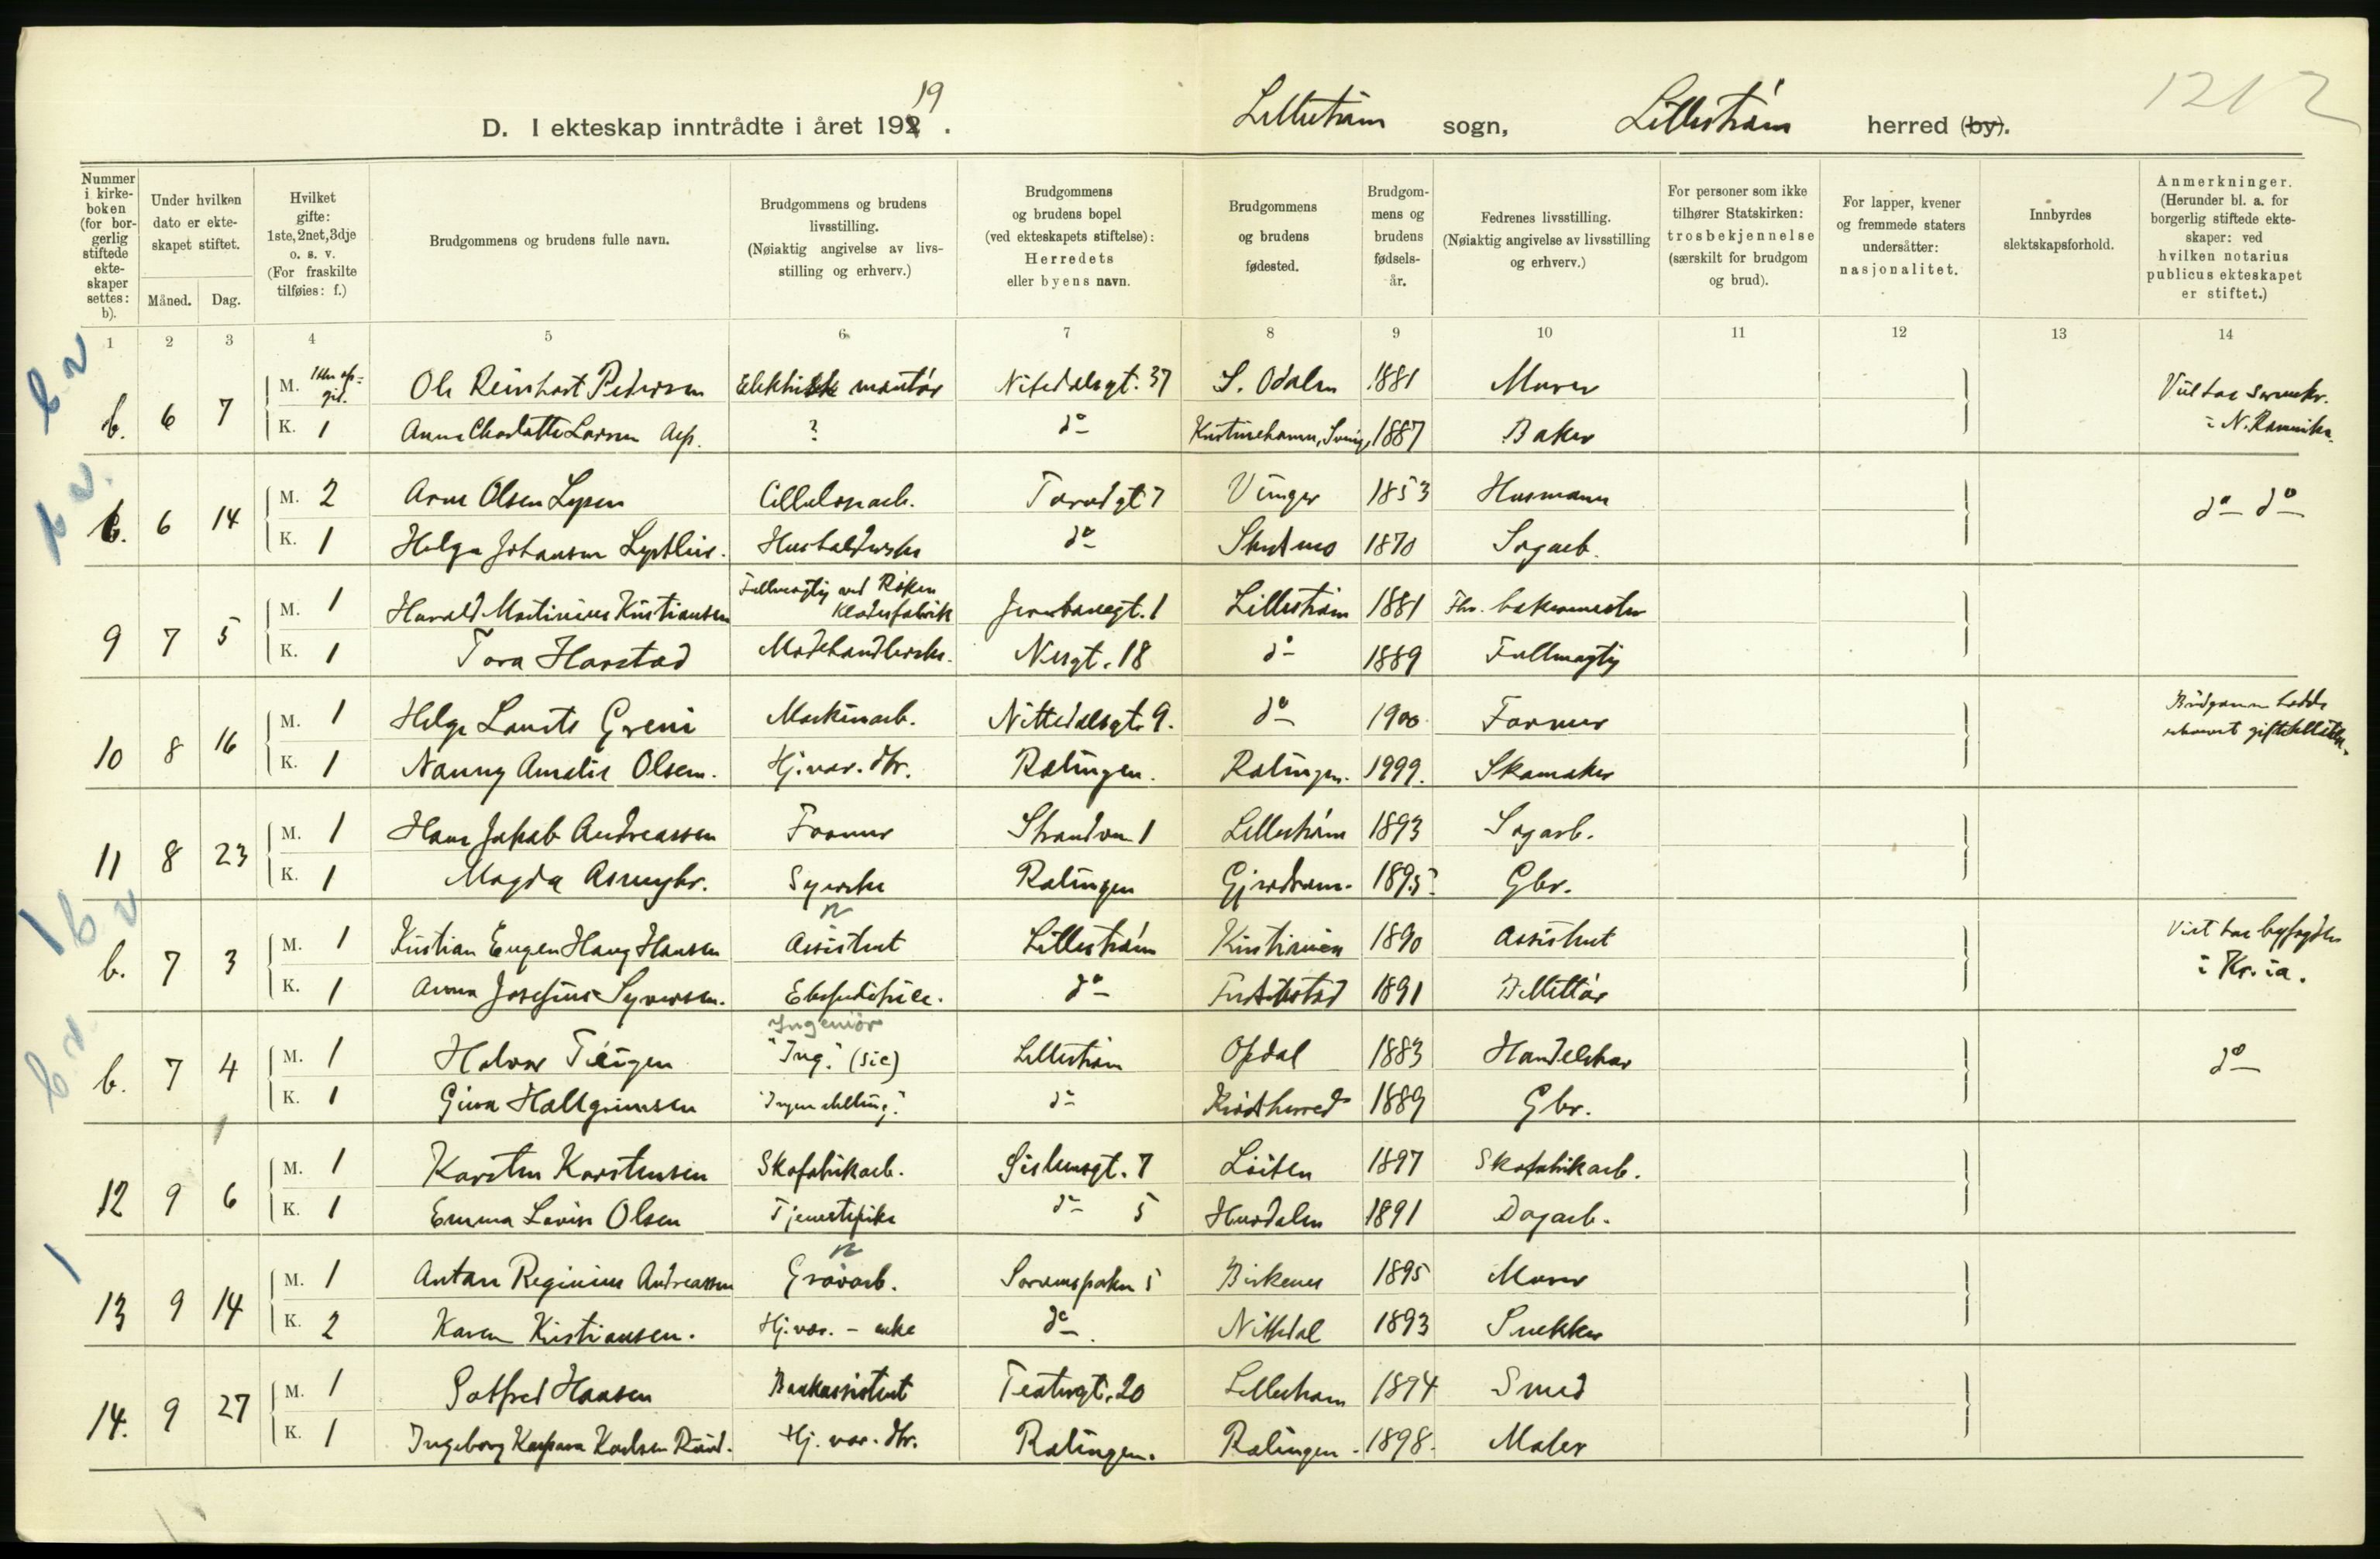 1212
D. I ekteskap inntrådte i året 192 19.
Lillestrøm sogn, Lillestrøm herred (by).
Nummer i kirkeboken (for borgerlig stiftede ekteskaper settes: b).
Under hvilken dato er ekteskapet stiftet.
Måned. Dag.
Hvilket gifte: 1ste, 2net, 3dje o. s. v. (For fraskilte tilføies: f.)
Brudgommens og brudens fulle navn.
Brudgommens og brudens livsstilling. (Nøiaktig angivelse av livsstilling og erhverv.)
Brudgommens og brudens bopel (ved ekteskapets stiftelse): Herredets eller byens navn.
Brudgommens og brudens fødested.
Brudgommens og brudens fødselsår.
Fedrenes livsstilling. (Nøiaktig angivelse av livsstilling og erhverv.)
For personer som ikke tilhører Statskirken: trosbekjennelse (særskilt for brudgom og brud).
For lapper, kvener og fremmede staters undersåtter: nasjonalitet.
Innbyrdes slektskapsforhold.
Anmerkninger. (Herunder bl. a. for borgerlig stiftede ekteskaper: ved hvilken notarius publicus ekteskapet er stiftet.)
1 2 3 4 5 6 7 8 9 10 11 12 13 14
b. 6 7 M. Ole Reinhart Pedersen Elektrisk montør Nitedalsgt. 37 S. Odalen 1881 Murer
K. 1 Anna Charlotte Larsen Asp. ? do Kristinehamn, Sverig, 1887 Baker
b. 6 14 M. 2 Arne Olsen Lysen Cellulosearb. Torvdgt 7 Vinger 1853 Husmann do do
K. 1 Helga Johansen Husholderske do 1870 Sagarb.
9 7 5 M. 1 Harald Martinius Kristiansen Fullmegtig ved Røken Klædesfabrik Jernbanegt. 1 Lillestrøm 1881 Fhv. bakermester
K. 1 Tora Harstad Modehandlerske. Nesgt. 18 do 1889 Fullmegtig
10 8 16 M. 1 Helge Laurits Greni Maskinarb. Nittedalsgt. 9. do 1900 Former
K. 1 Nanny Amalie Olsen. Hj.vær. dtr. Rælingen. Rælingen. 1999. Skomaker
11 8 23 M. 1 Hans Jakob Andreassen Former Strandvn 1 Lillestrøm 1893 Sagarb.
K. 1 Magda Syerske Rælingen Gjerdrum. 1895. Gbr.
b. 7 3 M. 1 Kristian Eugen Haug Hansen Assistent Lillestrøm Kristiania 1890 Assistent Viet hos byfogden
i Kr.ia.
K. 1 Anna Josefine Syversen. Ekspeditrice. do Fredrikstad 1891 Billettør
Ingeniør
b. 7 4 M. 1 Halvor Teigen "Ing." (sic) Lillestrøm Opdal 1883 Handelskar do
K. 1 Gina Hallgrimsen "Ingen stilling". do Krødsherred 1889 Gbr.
12 9 6 M. 1 Karsten Karstensen Skofabrikarb. 7 Løiten 1897 Skofabrikarb.
K. 1 Emma Lovise Olsen Tjenestepike do 5 Hurdalen 1891 Dagarb.
13 9 14 M. 1 Anton Reginius Andreassen Gravarb. 5 Birkenes 1895 Murer
K. 2 Karen Kristiansen. Hj.vær. - enke do Nittedal 1893 Snekker
14. 9 27 M. 1 Gotfred Hansen Bankassistent Teatergt. 20 Lillestrøm 1894 Smed
K. 1 Ingeborg Kaspara Karlsen Rud. Hj. vær. dtr. Rælingen. Rælingen. 1898. Maler